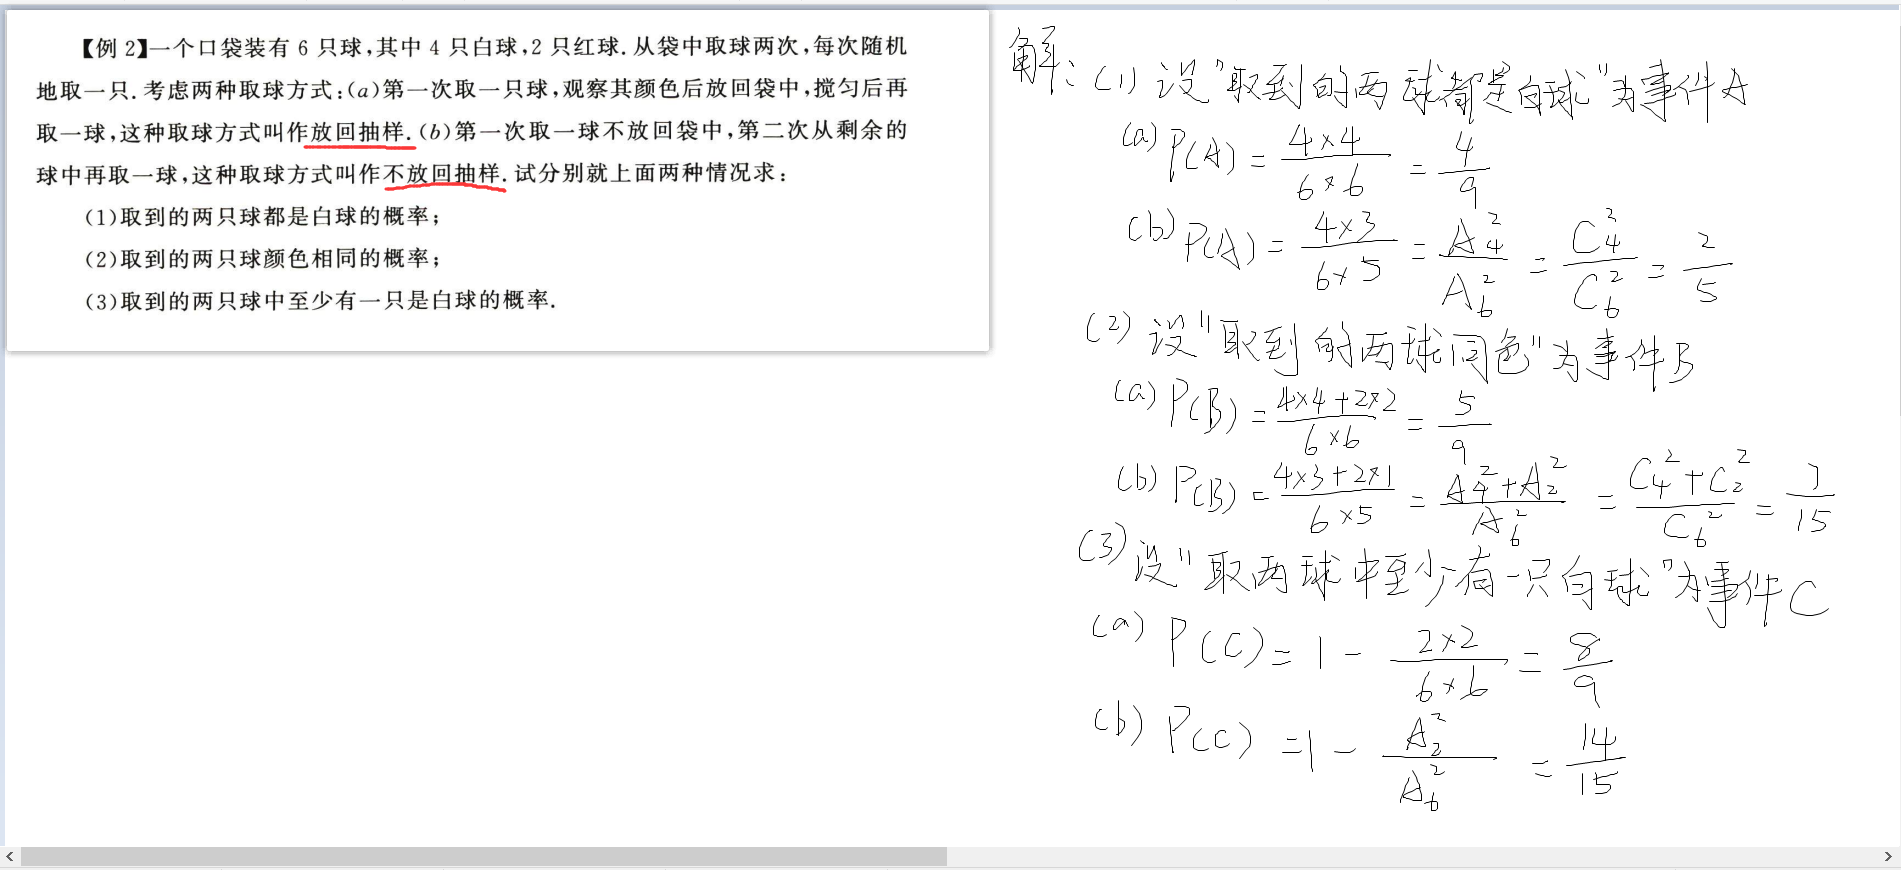 【例2】一个口袋装有6只球,其中4只白球,2只红球.从袋中取球两次,每次随机
地取一只.考虑两种取球方式:(a)第一次取一只球,观察其颜色后放回袋中,搅匀后再
取一球,这种取球方式叫作放回抽样.(b)第一次取一球不放回袋中,第二次从剩余的
球中再取一球,这种取球方式叫作不放回抽样.试分别就上面两种情况求:
(1)取到的两只球都是白球的概率;
(2)取到的两只球颜色相同的概率;
(3)取到的两只球中至少有一只是白球的概率.
解:(1)设"取到的两球都是白球"为事件A
(a) P(A) = \frac{4×4}{6×6} = \frac{4}{9}
(b) P(A) = \frac{4×3}{6×5} = \frac{A_4^2}{A_6^2} = \frac{C_4^2}{C_6^2} = \frac{2}{5}
(2) 设"取到的两球同色"为事件B
(a) P(B) = \frac{4×4+2×2}{6×6} = \frac{5}{9}
(b) P(B) = \frac{4×3+2×1}{6×5} = \frac{A_4^2+A_2^2}{A_6^2} = \frac{C_4^2+C_2^2}{C_6^2} = \frac{7}{15}
(3) 设"取两球中至少有一只白球"为事件C
(a) P(C) = 1 - \frac{2×2}{6×6} = \frac{8}{9}
(b) P(C) = 1 - \frac{A_2^2}{A_6^2} = \frac{14}{15}